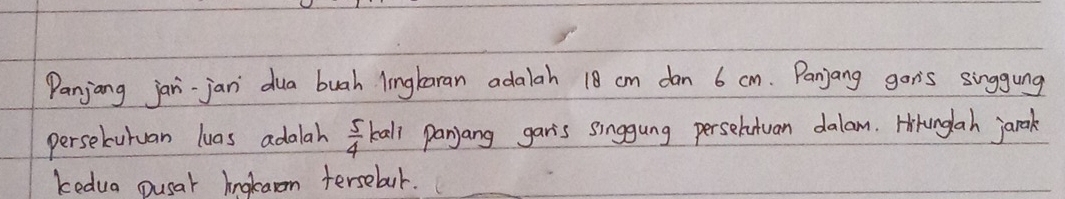 Panjang jari-jari dua buah lingkaran adalah 18 cm dan 6 cm. Panjang garis singgung
persekutuan luas adalah 5/4 kali panjang garis singgung persekutuan dalam. Hitunglah jarak
kedua pusat lingkaran tersebut.